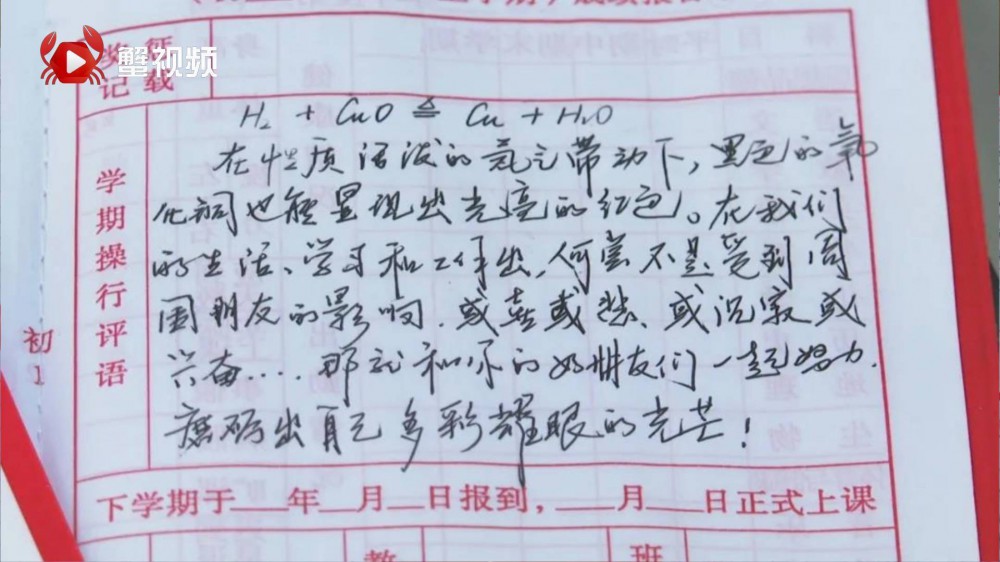 蟹视频
奖惩
记载
学期操行评语
H₂ + CuO ≜ Cu + H₂O
在性质活泼的氢气带动下，黑色的氧
化铜也能显现出光亮的红色。在我们
的生活、学习和工作出，何尝不是受到周
围朋友的影响，或喜或悲、或沉寂或
兴奋....那就和你的好朋友们一起努力，
磨砺出自己多彩耀眼的光芒！
初1
下学期于___年___月___日报到，___月___日正式上课
教
班